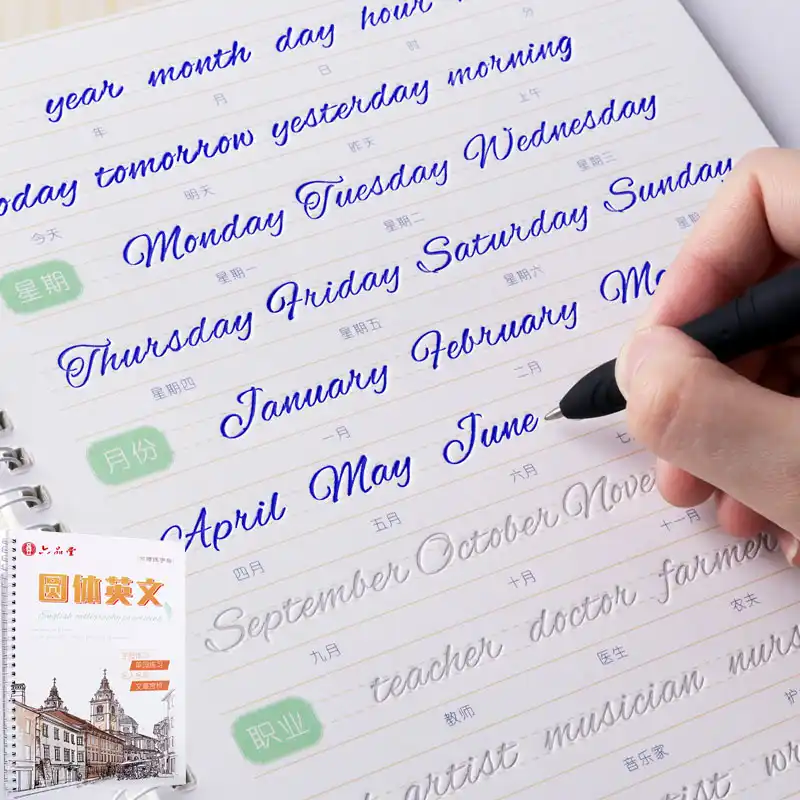 year month day hour
年 月 日 时 分
oday tomorrow yesterday morning
今天 明天 昨天 上午
Monday Tuesday Wednesday
星期 星期一 星期二 星期三
Thursday Friday Saturday Sunday
星期四 星期五 星期六 星期
January February Ma
月份 一月 二月
April May June
四月 五月 六月 七
September October Nove
九月 十月 十一月
teacher doctor farmer
职业 教师 医生 农夫
artist musician nurs
音乐家 护
六品堂
圆体英文
单词练习
文章赏析